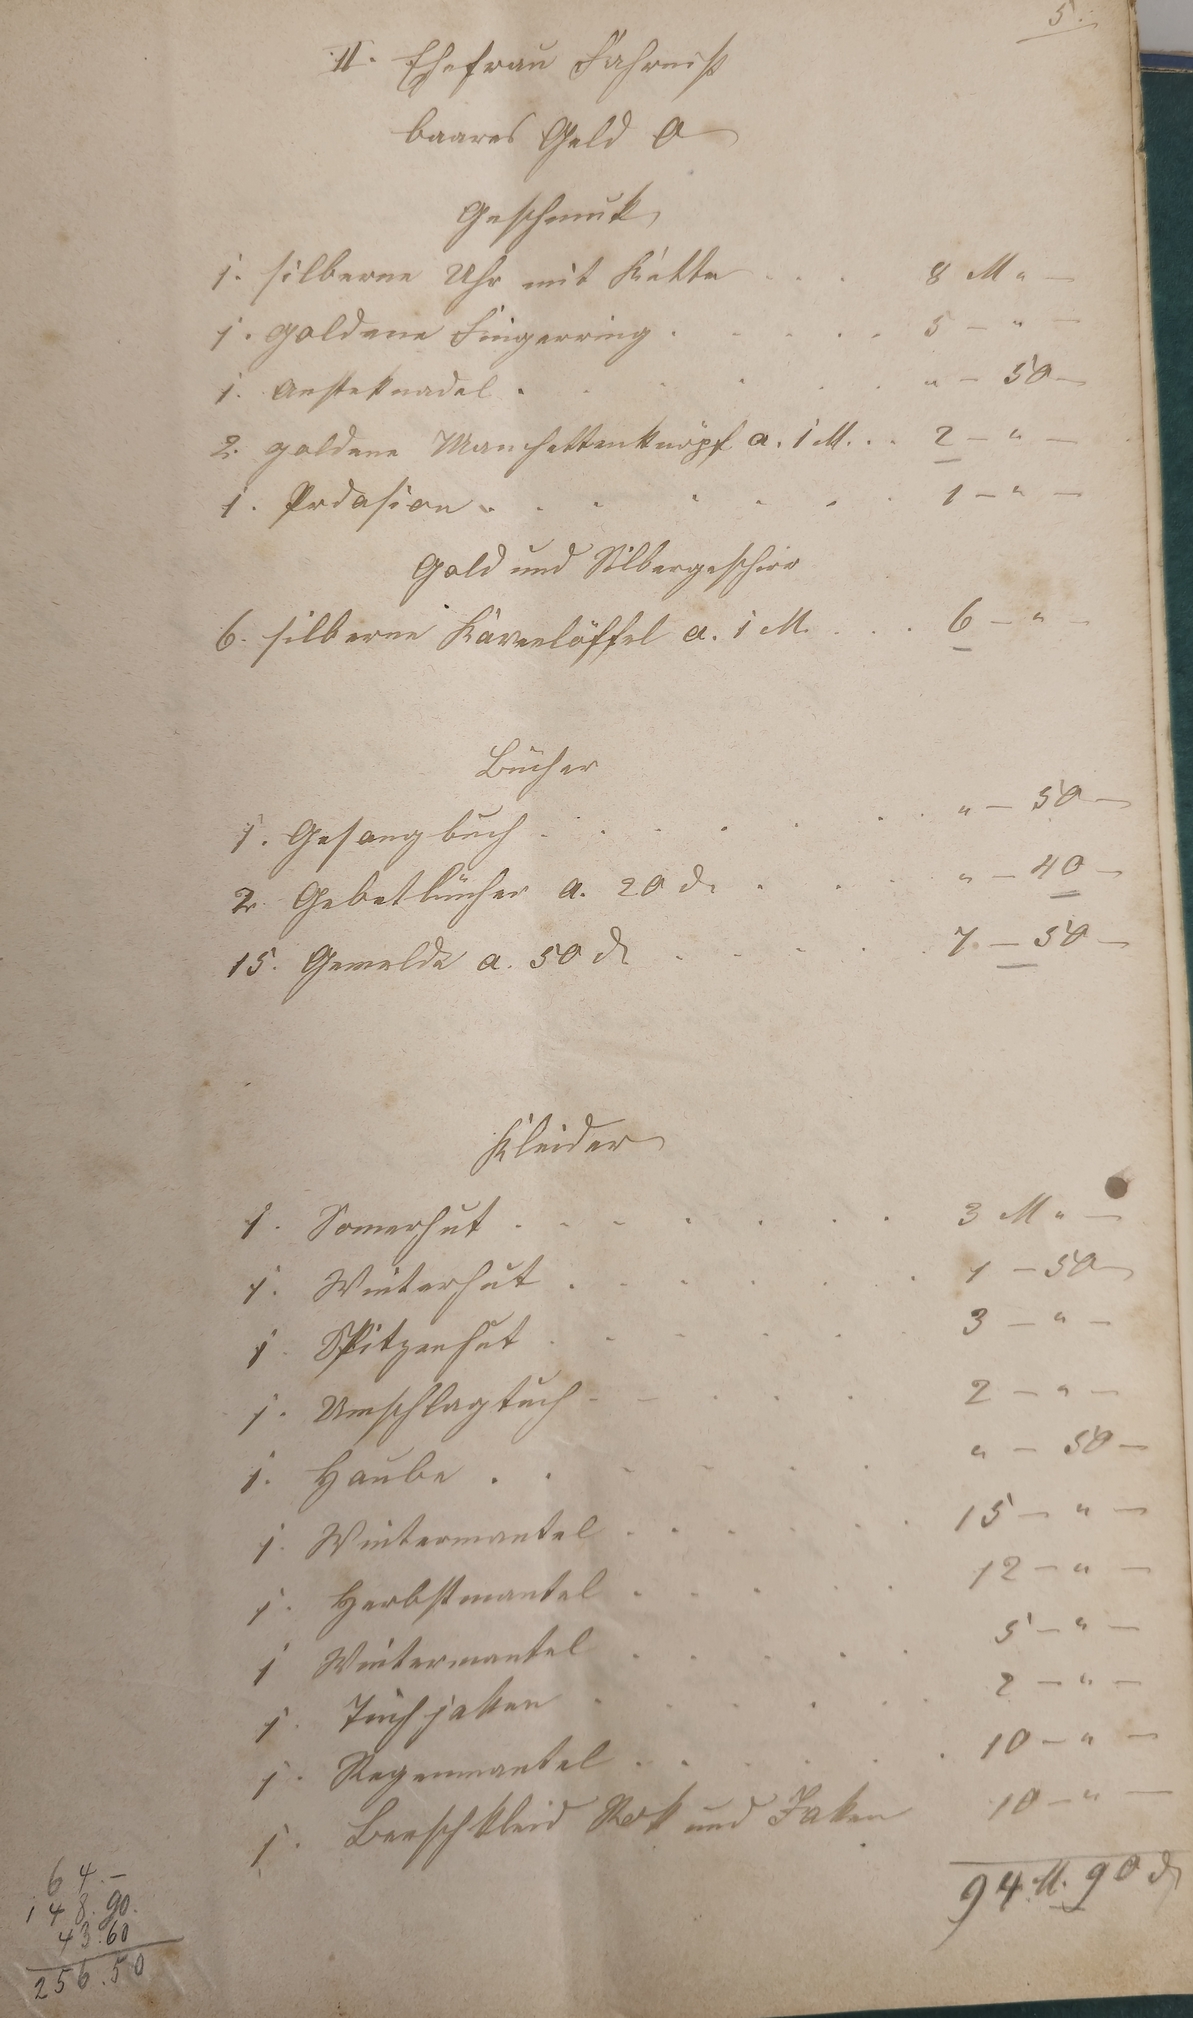 5.
II. Ehefrau Fahrniß
baares Geld O
Geschmuk
1. silberne Uhr mit Kette . . . 8 M " —
1. goldene Fingerring . . . . . 5 — " —
1. Ansteknadel . . . . . . " — 50 —
2. goldene Manschettenknöpf a. 1 M. . . 2 — " —
1. . . . . . . . 1 — " —
Gold und Silbergeschirr
6. silberne Kaveelöffel a. 1 M. . . . 6 — " —
Bücher
1. Gesangbuch . . . . . . . " — 50 —
2. Gebetbücher a. 20 ₰ . . . " — 40 —
15. Gemelde a. 50 ₰ . . . . . 7 — 50 —
Kleider
1. Somerhut . . . . . . . 3 M " —
1. Winterhut . . . . . . . 1 — 50 —
1. Spitzenhut . . . . . . 3 — " —
1. Umschlagtuch . . . . . 2 — " —
1. Haube . . . . . . " — 50 —
1. Wintermantel . . . . . . 15 — " —
1. Herbstmantel . . . . . 12 — " —
1 Wintermantel . . . . . 5 — " —
1. Tuchjaken . . . . . . 2 — " —
1. Regenmantel . . . . . . 10 — " —
1. Rok und Jaken 10 — " —
94 M. 90 ₰
64.—
148.90.
43.60
256.50